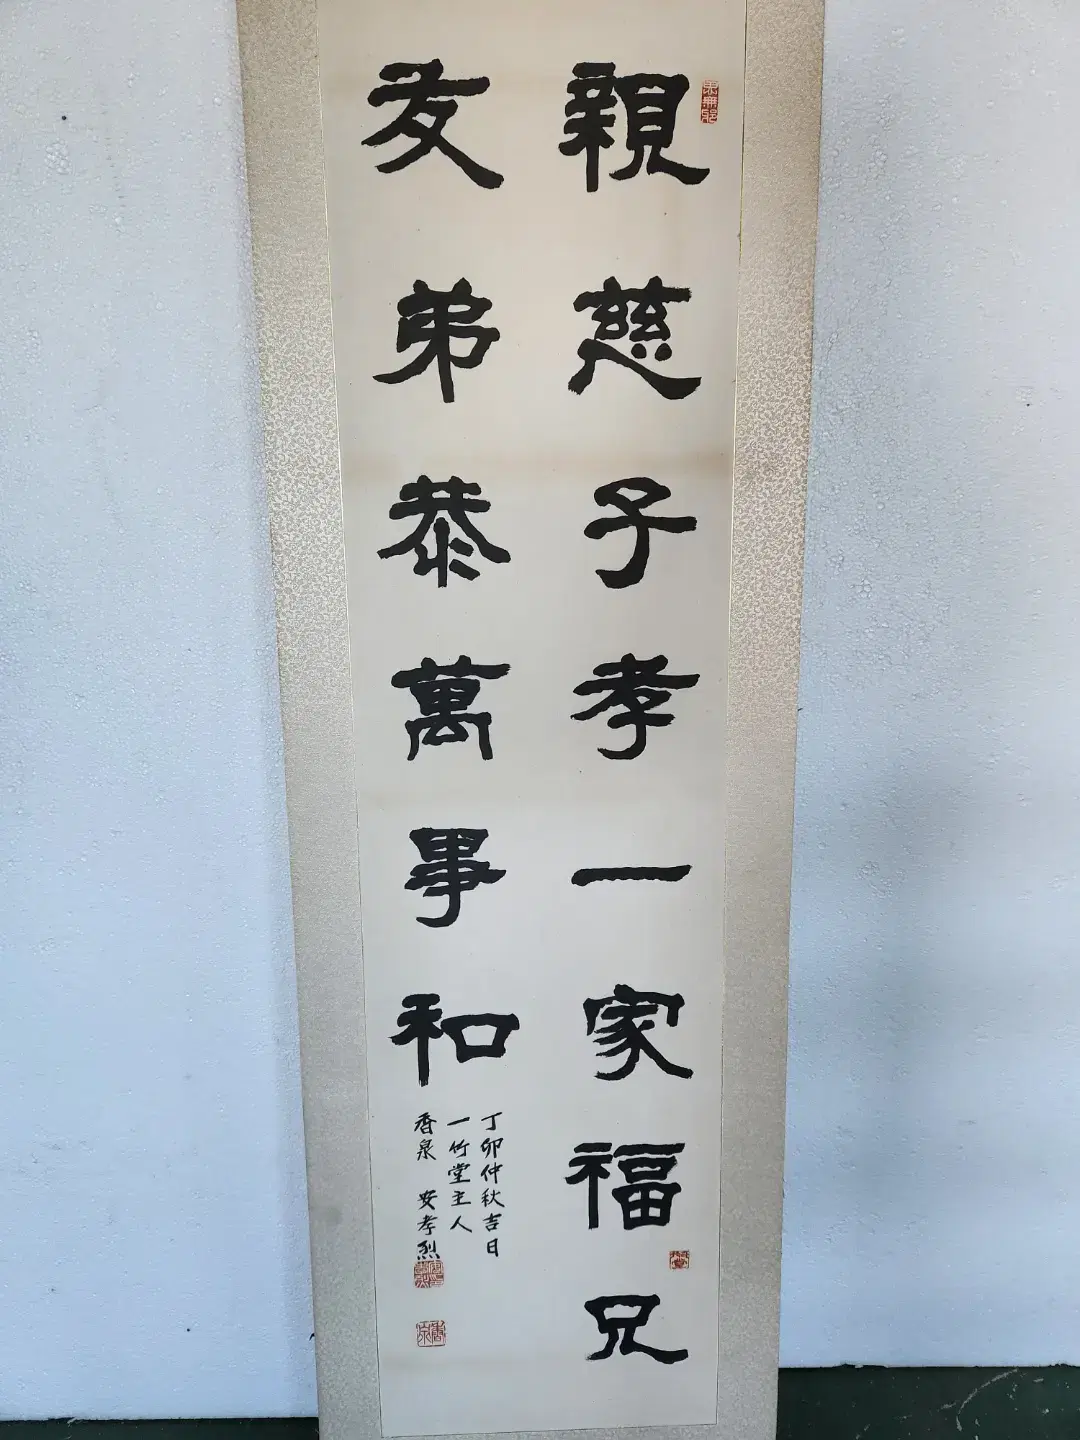 親慈子孝一家福兄
友弟恭萬事和
丁卯仲秋吉日
一竹堂主人
香泉 安孝烈